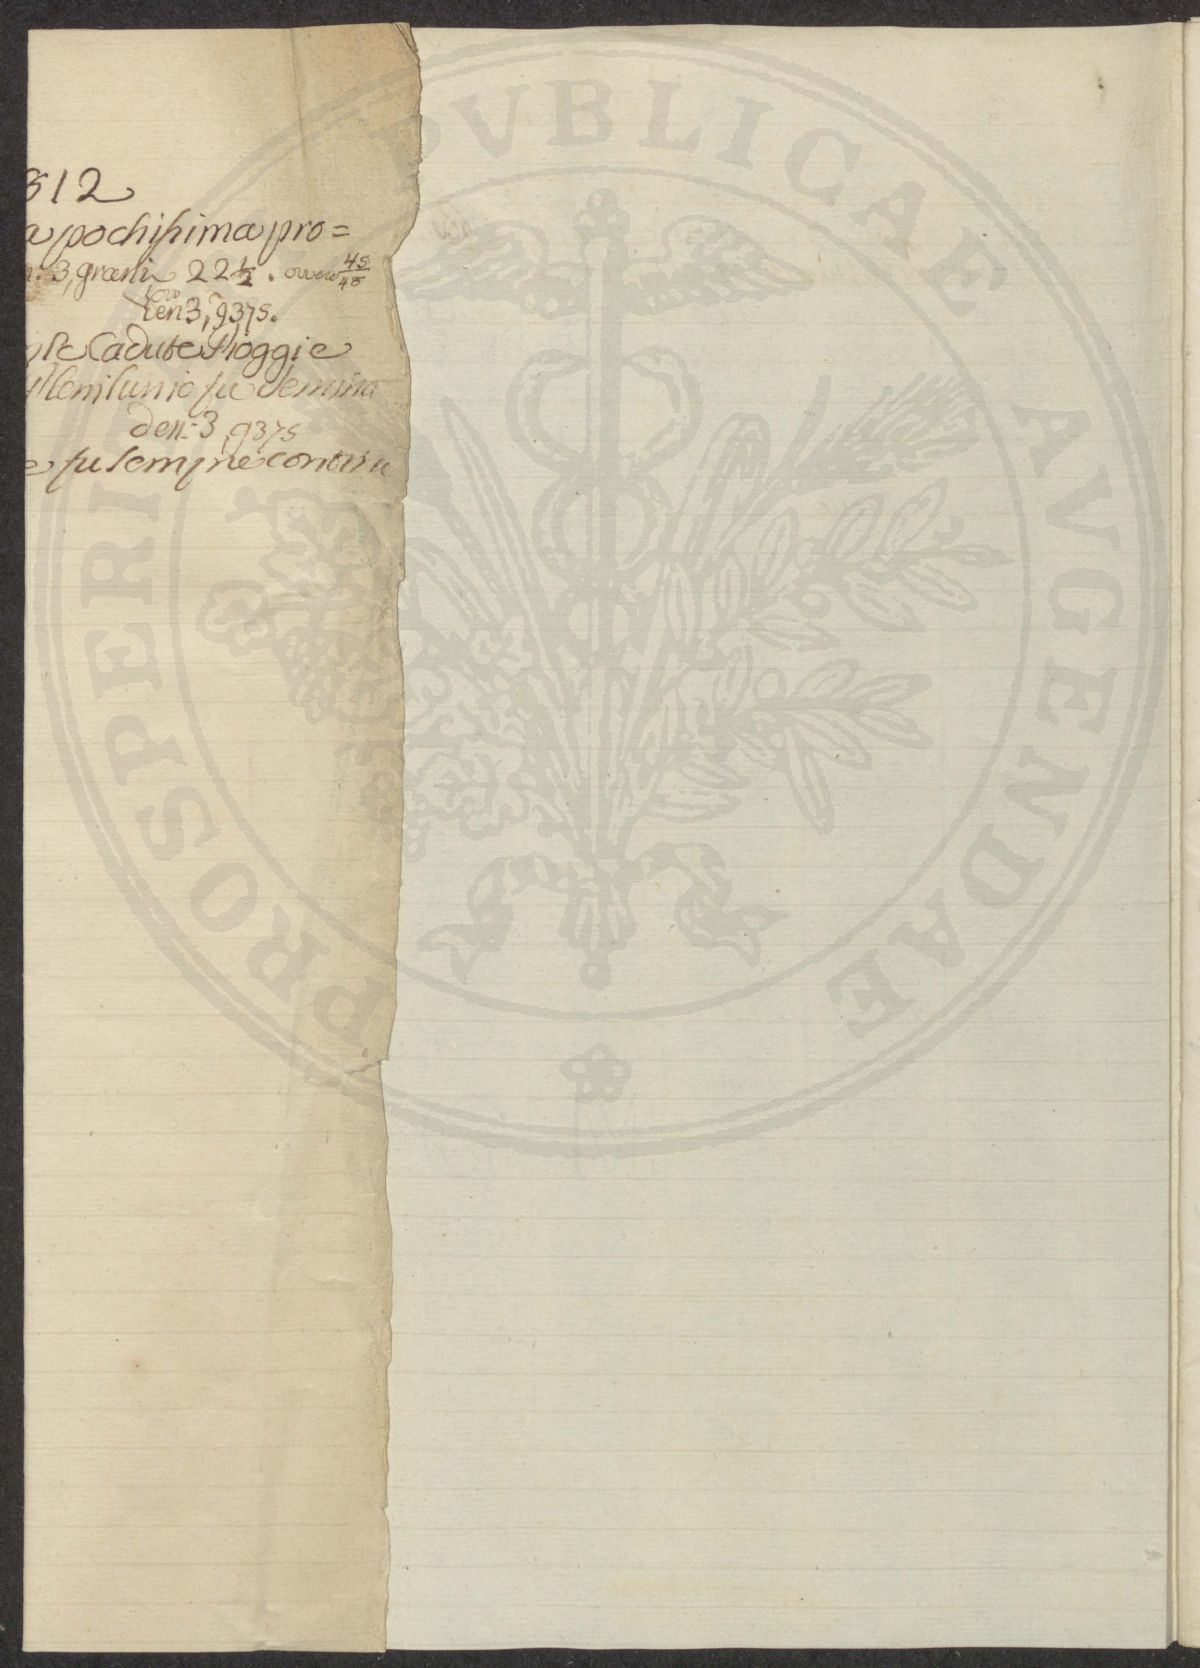 812
a pochissima pro=
n: 3, grani 22 1/2. ovvero 45/48
den 3, 9375.
le Cadute Pioggie
plenilunio fu
den: 3, 9375
e fu sempre continu
PROSPERITATI PVBLICAE AVGENDAE